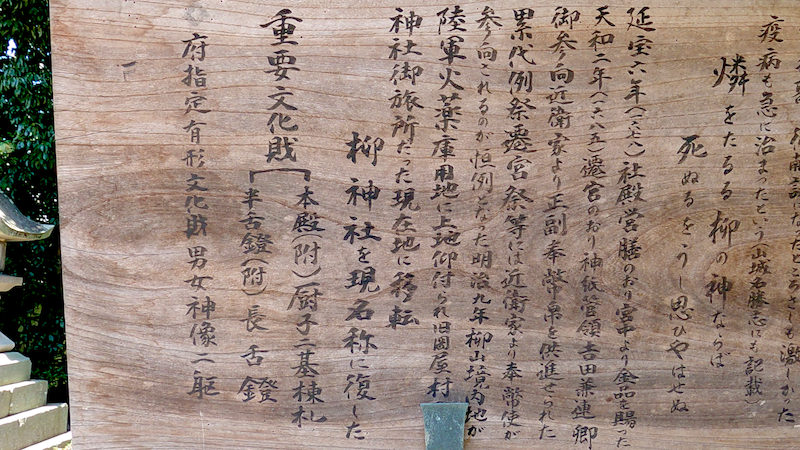 祈願詔したところさしも激しかった
疫病も急に治まったという(山城名勝志にも記載
憐をたるる柳の神ならば
死ぬるをうし思ひやはせぬ
延宝六年(一六七八)社殿営膳のおり宮中より金品を賜った
天和二年(一六八五)遷宮のおり神祇管領吉田兼連卿
御参向近衛家より正副奉幣帛を供進せられた
累代例祭遷宮祭等には近衛家より奉幣使が
参向されるのが恒例となった明治九年柳山境内地が
陸軍火薬庫用地に上地仰付られ旧岡屋村
神社御旅所だった現在地に移転
柳神社を現名称に復した
重要文化財
本殿(附)厨子二基棟札
半舌鐙(附)長舌鐙
府指定有形文化財男女神像二躯